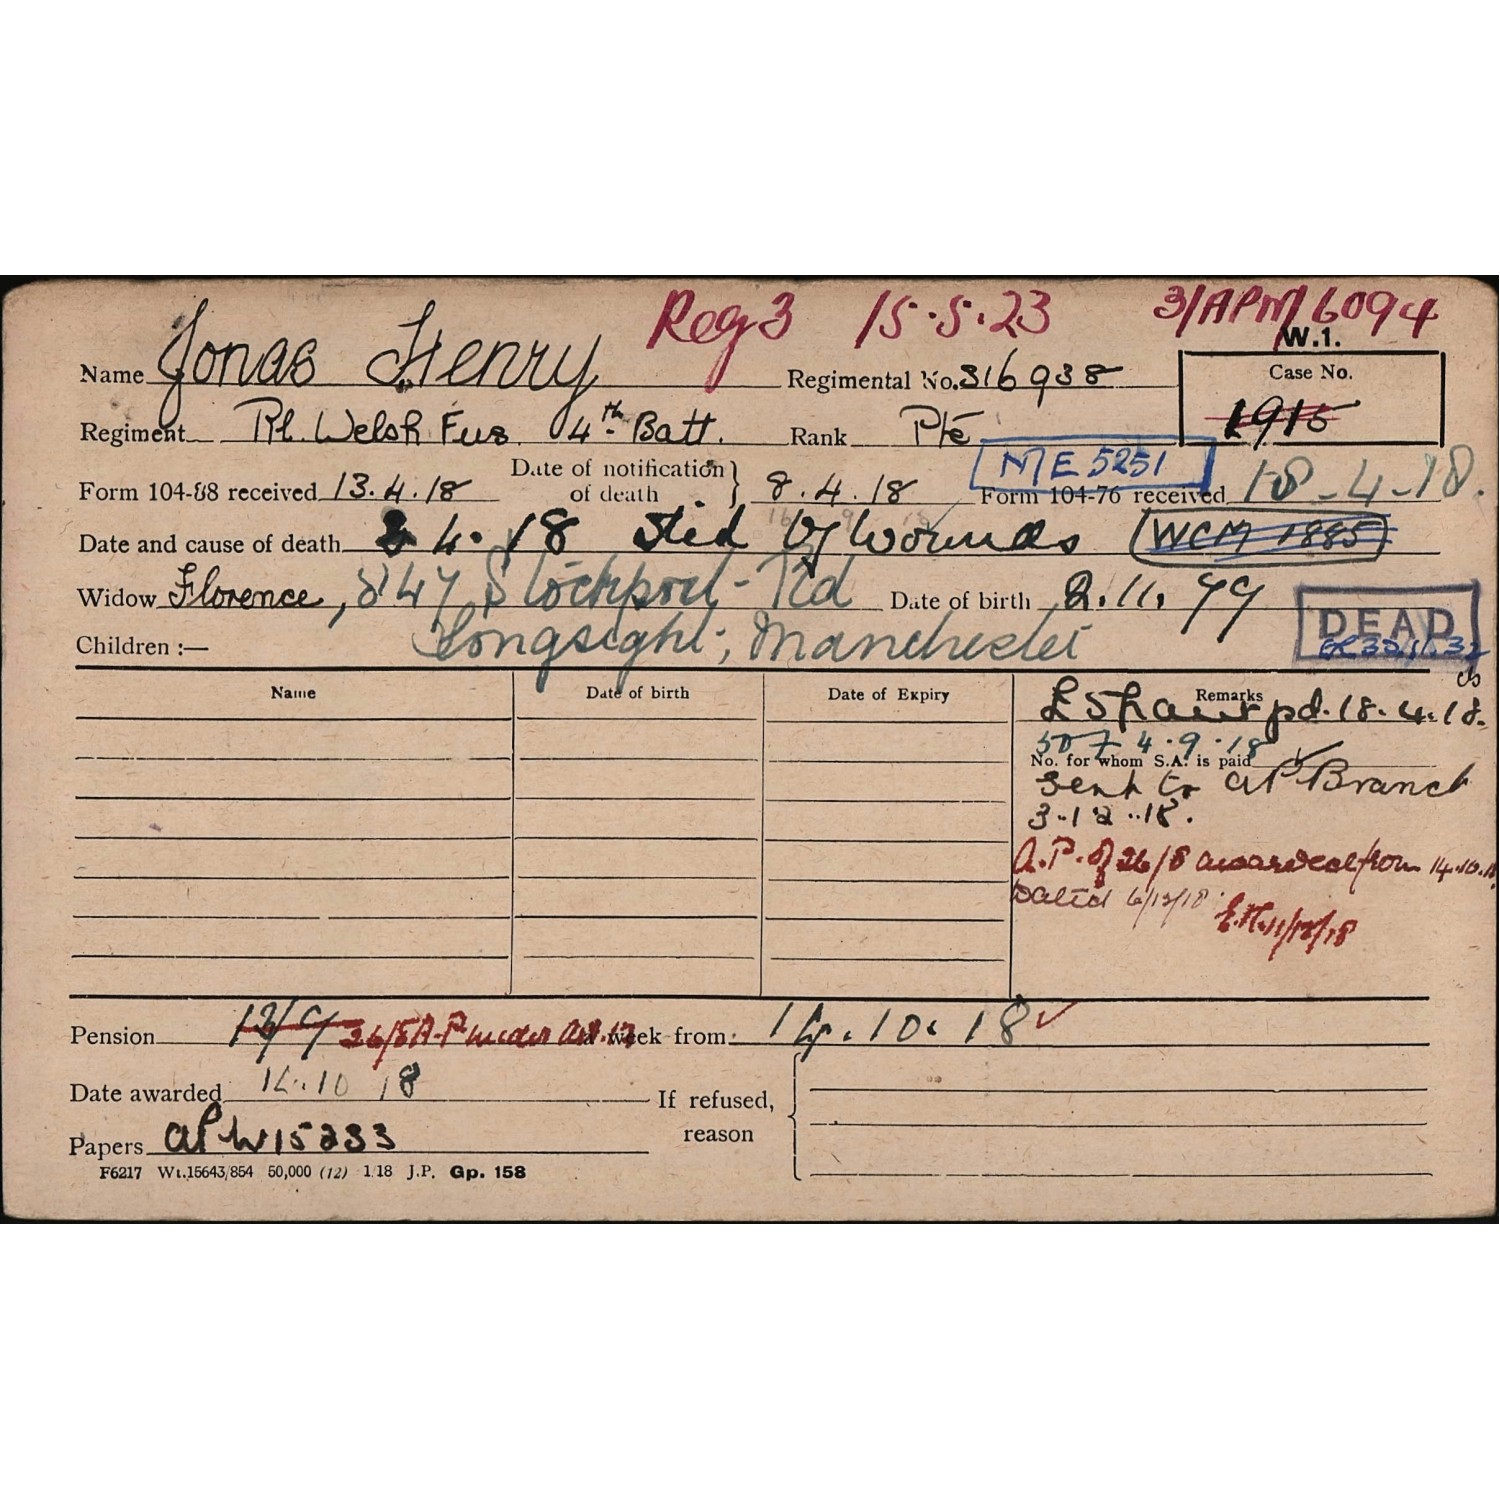 Reg 3 15.5.23 3/APM 6094
W.1.
Name Jonas Henry Regimental No. 316938 Case No.
Regiment Rl. Welsh Fus. 4th Batt. Rank Pte 1915
Form 104-88 received 13.4.18 Date of notification of death 8.4.18 Form 104-76 received 18-4-18.
M E 5251
Date and cause of death 4.18 Died by Wounds WCM 1885
Widow Florence, 847 Stockport Rd Date of birth 2.11.79
Longsight, Manchester DEAD
Children :—
Name Date of birth Date of Expiry Remarks
pd. 18.4.18.
507 4.9.18
No. for whom S.A. is paid
Sent to AP Branch
3.12.18.
A.P. of 26/8 awarded from 14.10.18
Dated 6/12/18
11/12/18
Pension 13/9 26/8 A.P under Art. a week from 14.10.18
Date awarded 14.10 18
If refused, reason
Papers AP W15233
F6217 Wt.15643/854 50,000 (12) 1/18 J.P. Gp. 158